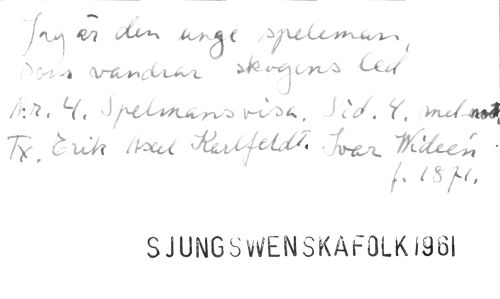 Jag är den unge speleman,
som vandrar skogens led
Nr. 4. Spelmansvisa. Sid. 4. med not.
Tx. Erik Axel Karlfeldt. Ivar Widéen
f. 1871.
SJUNGSWENSKAFOLK1961